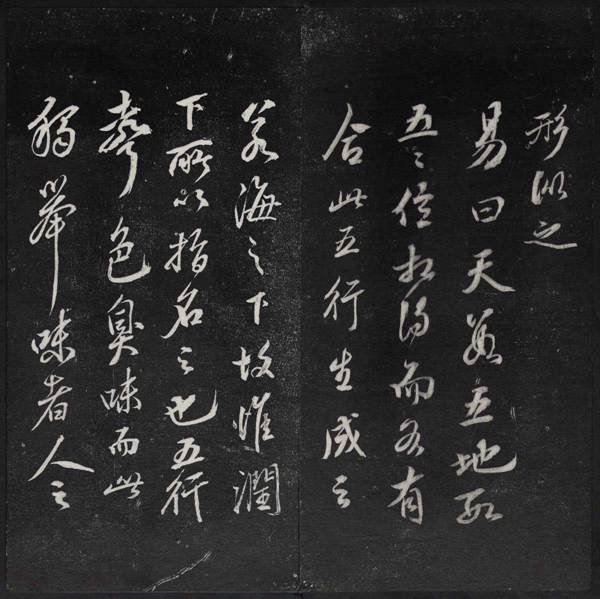 形之
易曰天數五地數
五五位相得而各有
合此五行生成之
海之下故惟潤
下所以指名之也五行
聲色臭味而此
獨舉味者人之